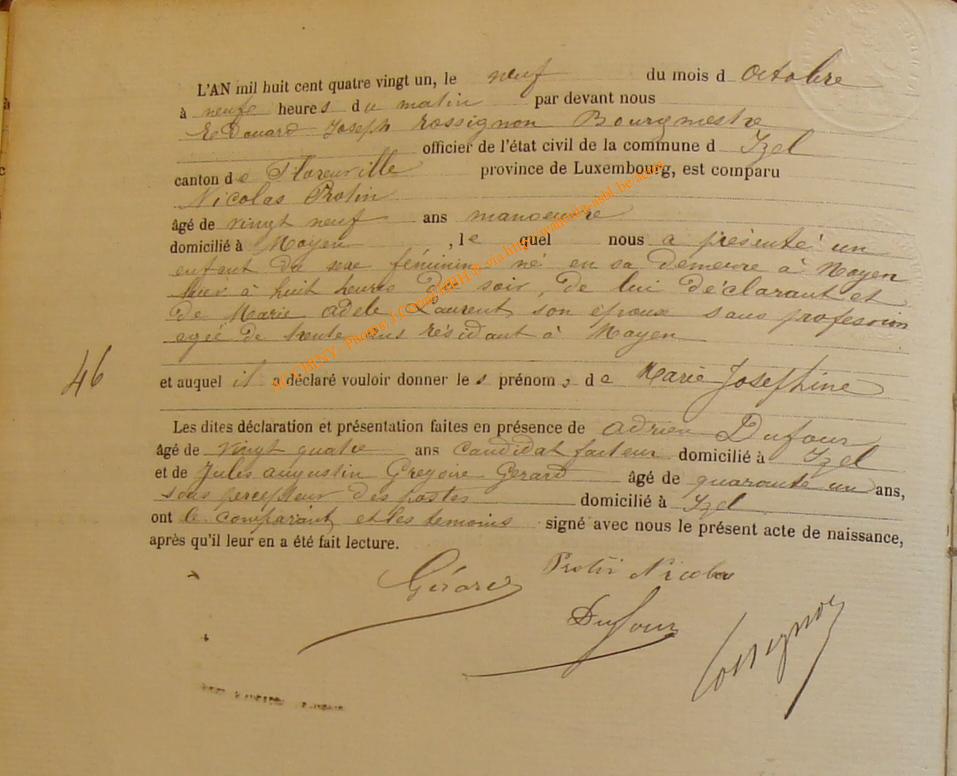 L'AN mil huit cent quatre vingt un, le neuf du mois d Octobre
à neuf heures du matin par devant nous
Edouard Joseph Rossignon Bourgmestre
officier de l'état civil de la commune d Izel
canton de Florenville province de Luxembourg, est comparu
Nicolas Protin
âgé de vingt neuf ans manoeuvre
domicilié à Moyen, le quel nous a présenté un
enfant du sexe féminin né en sa demeure à Moyen
hier à huit heures du soir, de lui déclarant et
de Marie Adele Laurent son épouse sans profession
agée de trente ans résidant à Moyen
46
et auquel il a déclaré vouloir donner les prénoms de Marie Josephine
Les dites déclaration et présentation faites en présence de Adrien Dufour
âgé de vingt quatre ans candidat facteur domicilié à Izel
et de Jules Augustin Gregoire Gerard âgé de quarante un ans,
sous percepteur des postes domicilié à Izel
ont le comparant et les temoins signé avec nous le présent acte de naissance,
après qu'il leur en a été fait lecture.
Gérard Protin Nicolas
Dufour
Rossignon